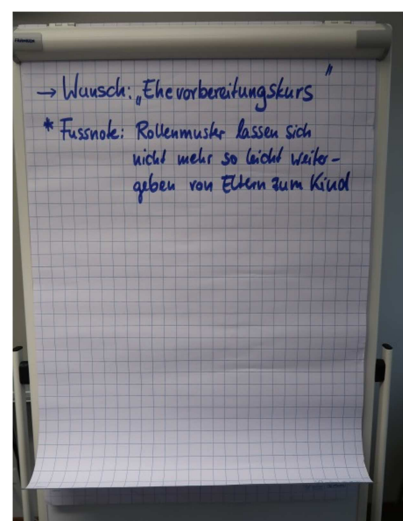 → Wunsch: „Ehevorbereitungskurs"
* Fussnote: Rollenmuster lassen sich
nicht mehr so leicht weiter-
geben von Eltern zum Kind